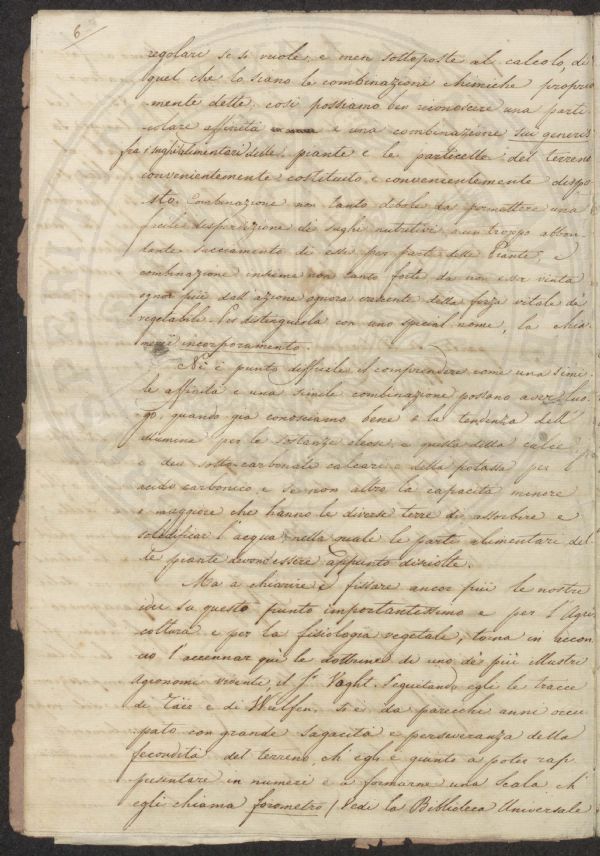 6
regolari se si vuole, e men sottoposte al calcolo, di
quel che lo siano le combinazione chimiche propria
-mente dette; così possiamo ben riconoscere una parti
colare affinità e una combinazione sui generis
fra i sughi alimentari delle piante e le particelle del terreno
convenientemente costituito e convenientemente dispo
sto. Combinazione non tanto debole da permettere una
facile disperdizione di sughi nutritivi, e un troppo abbon
dante succiamento di essi per parte delle Piante, e
combinazione insieme non tanto forte da non esser vinta
ognor più dall'azione ognora crescente della forza vitale di
vegetabile. Per distinguerla con uno special nome, la chia
incorporamento.
Nè è punto difficile il comprendere come una simi
le affinità e una simile combinazione possano aver luo
go, quando già conosciamo bene e la tendenza dell'
allumine per le sostanze oleose, e quella della calce
e dei sotto-carbonati calcarei e della potassa per l'
acido carbonico e se non altro la capacità minore
o maggiore che hanno le diverse terre di assorbire e
solidificar l'acqua nella quale le parti alimentari del
le piante devon essere appunto disciolte.
Ma a chiarire e fissare ancor più le nostre
idee su questo punto importantissimo e per l'Agri
coltura e per la fisiologia vegetale, torna in accon
cio l'accennar quì le dottrine di uno dei più illustri
Agronomi viventi il Sr. Voght. Seguitando egli le tracce
di Täer e di Wulfen, si è da parecchi anni occu
pato con grande sagacità e perseveranza della
fecondità del terreno, ch'egli è giunto a poter rap
presentare in numeri e a formarne una Scala ch'
egli chiama forometro / Vedi la Biblioteca Universale